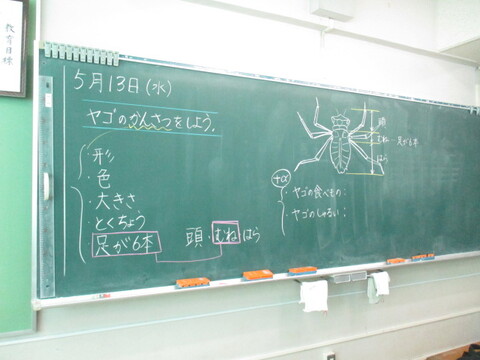 教育目標
5月13日(水)
ヤゴのかんさつをしよう。
・形
・色
・大きさ
・とくちょう
足が6本
頭・むね・はら
頭
むね…足が6本
はら
+α
・ヤゴの食べもの:
・ヤゴのしゅるい: